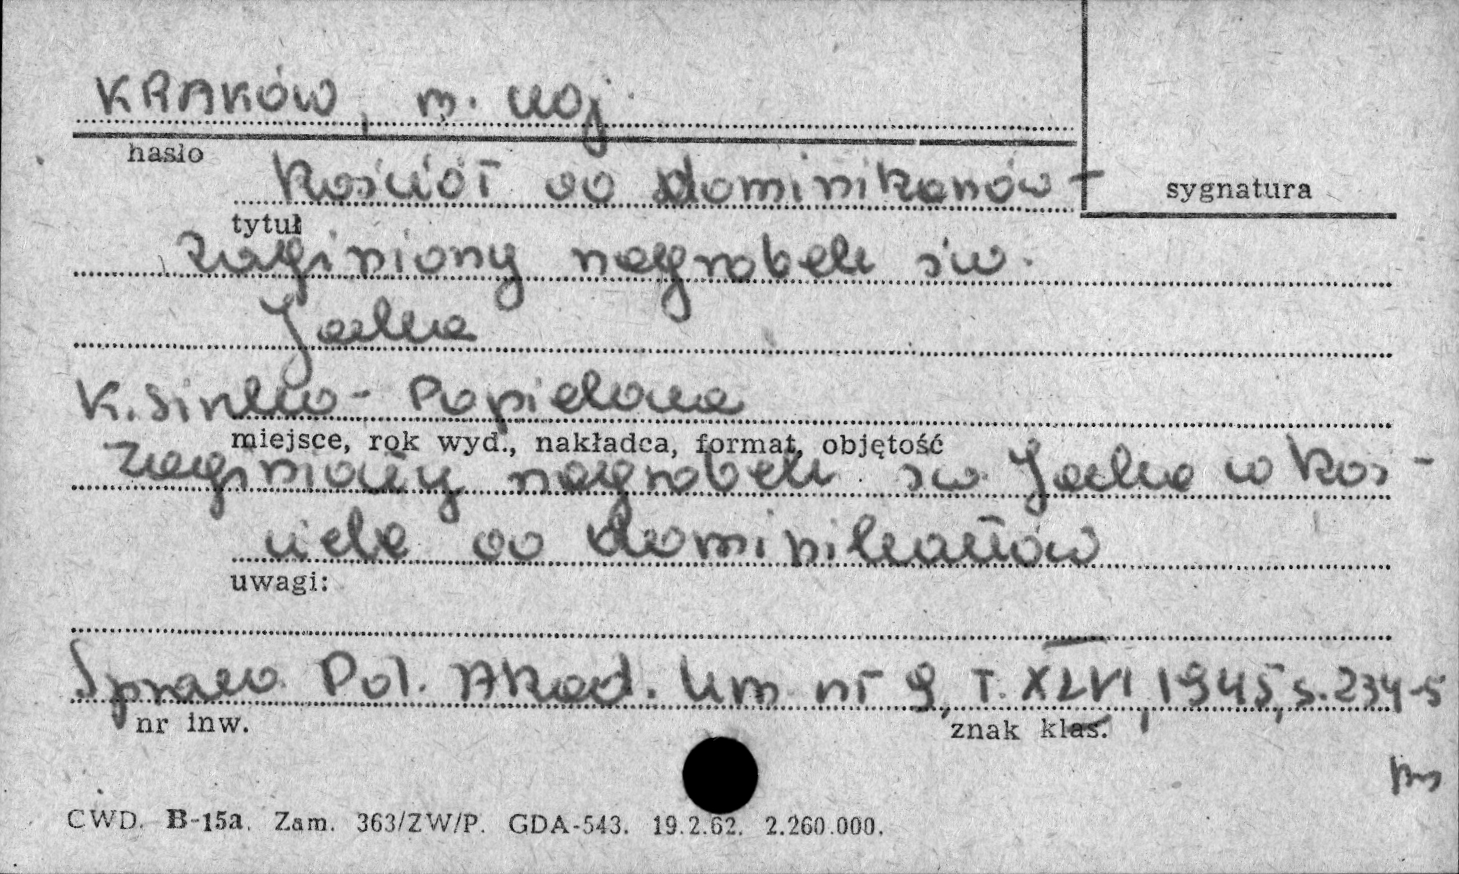 KRAKÓW, m. woj.
hasło
Kościół oo dominikanów -
sygnatura
tytuł
zaginiony nagrobek św.
Jacka
K. Sinko - Popielowa
miejsce, rok wyd., nakładca, format, objętość
Zaginiony nagrobek św. Jacka w koś -
ciele oo dominikanów
uwagi:
Spraw. Pol. Akad. Um nr 9, T. XLVI, 1945, s. 234-5
nr inw.
znak klas.
CWD. B-15a. Zam. 363/ZW/P. GDA-543. 19.2.62. 2.260.000.